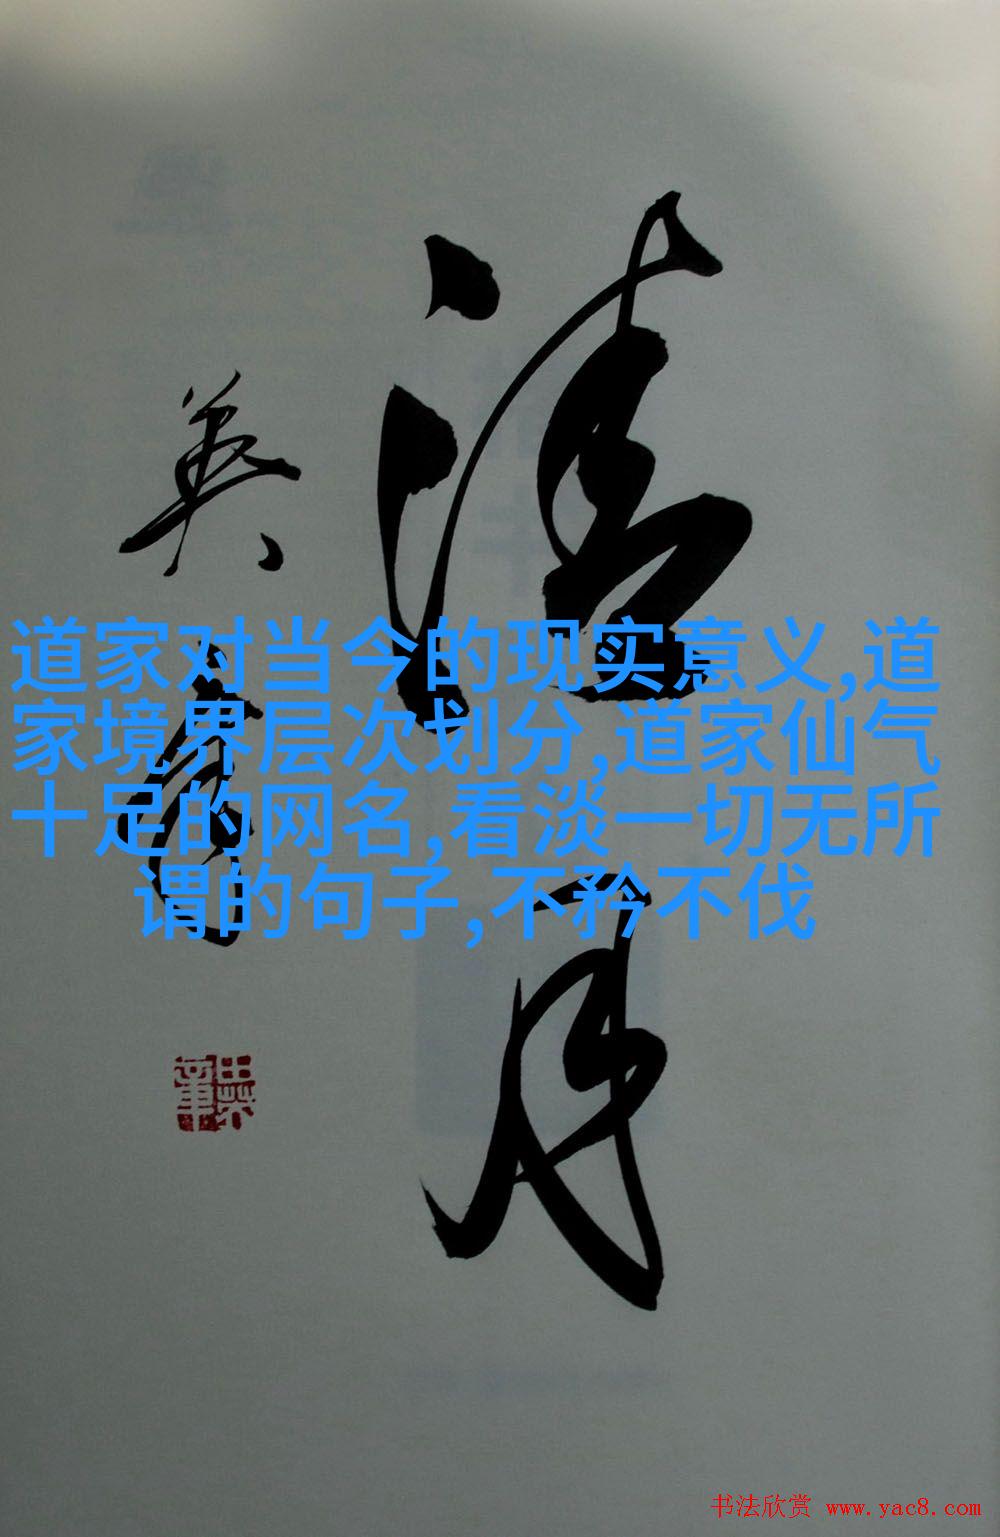 清月
英章
道家对当今的现实意义,道
家境界层次划分,道家仙气
十足的网名,看淡一切无所
谓的句子,不矜不伐
书法欣赏 www.yac8.com